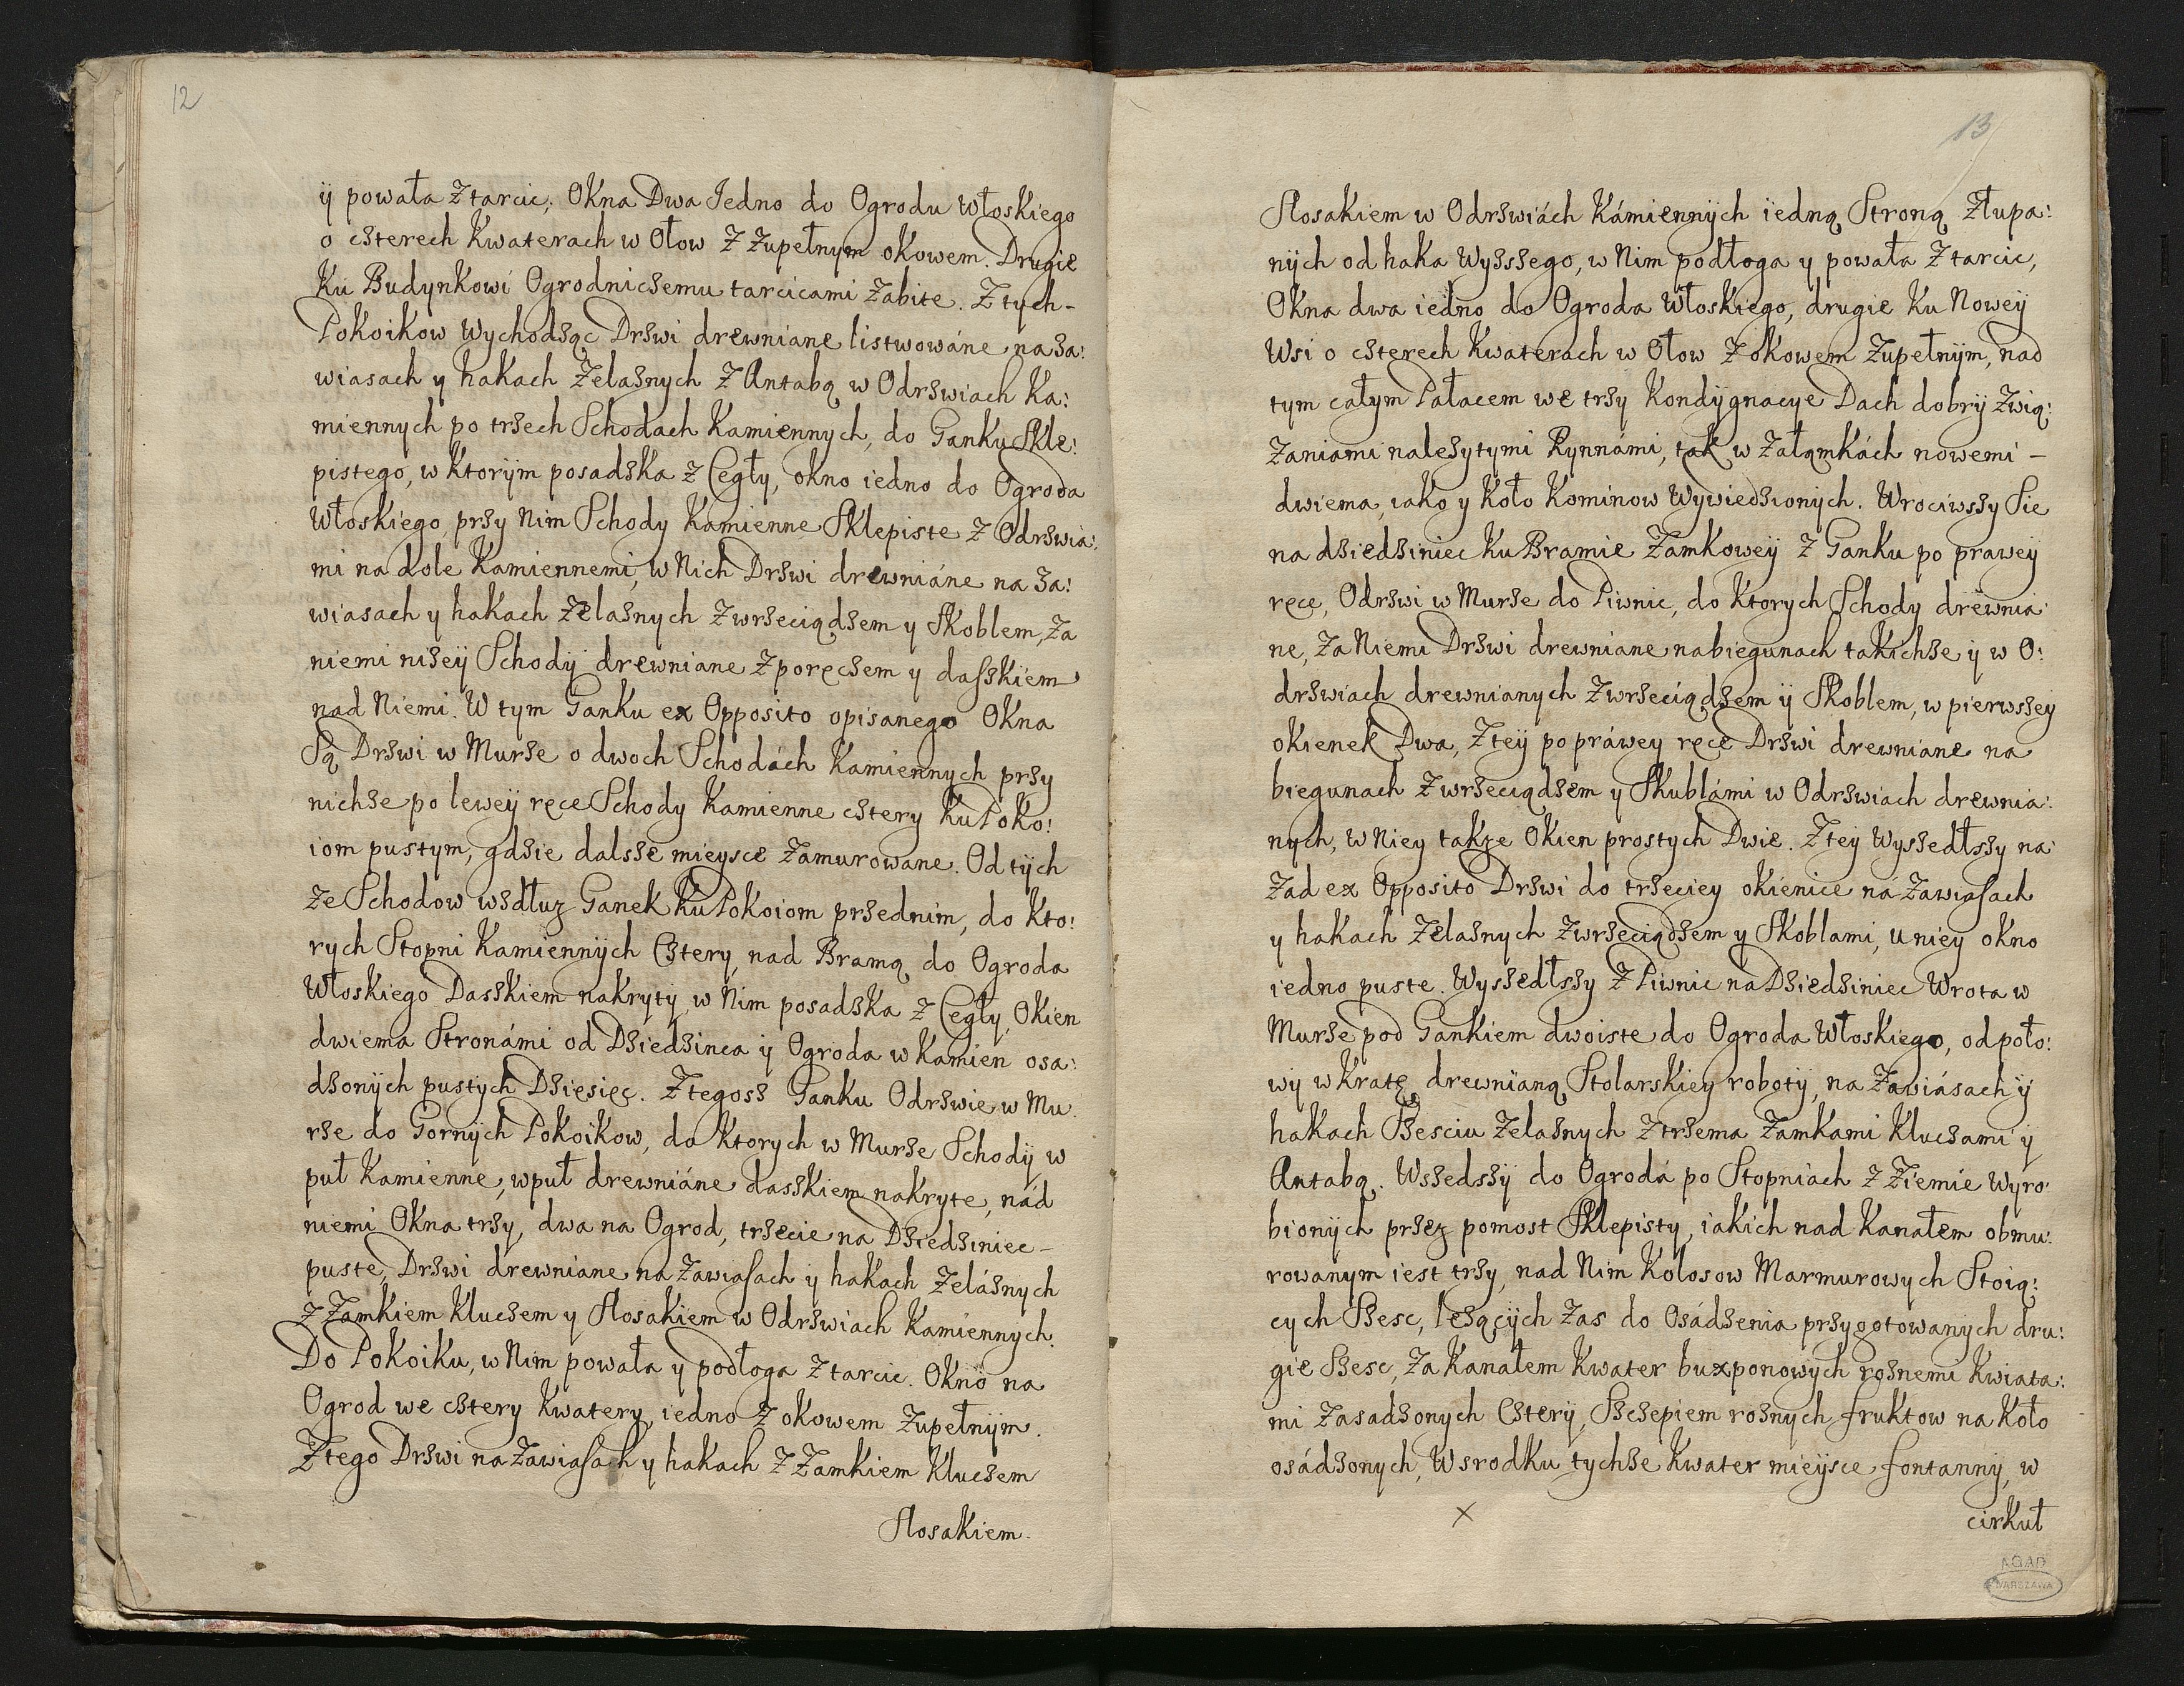 12
ÿ powała z tarcic, Okna Dwa Jedno do Ogrodu Włoskiego
o czterech Kwaterach w Ołow z Zupełnym okowem. Drugie
Ku Budynkowi Ogrodniczemu tarcicami zabite. Z tych-
Pokoikow Wychodząc Drzwi drewniane listwowáne na za:
wiasach y hakach Żelaznych z Antabą w Odrzwiach Ka:
miennych po trzech Schodach Kamiennych, do Ganku Skle:
pistego, w Ktorÿm posadzka z Cegły, okno iedno do Ogroda
Włoskiego, przy Nim Schody Kamienne Sklepiste z Odrzwia:
mi na dole Kamiennemi, w Nich Drzwi drewniáne na za:
wiasach y hakach Żelaznych z wrzeciądzem y Skoblem, Za
niemi niżeÿ Schodÿ drewniane z poręczem y daszkiem
nad Niemi. W tym Ganku ex Opposito opisanego Okna
Są Drzwi w Murze o dwoch Schodách Kamiennych przy
nichże po leweÿ ręce Schody Kamienne cztery Ku Poko:
iom pustym, gdzie dalsze mieysce zamurowane. Od tÿch
że Schodow wzdłuz Ganek Ku Pokoiom przednim, do Kto:
rych Stopni Kamiennÿch Cztery, nad Bramą do Ogroda
Włoskiego Daszkiem nakrytÿ, w Nim posadzka z Cegły, Okien
dwiema Stronámi od Dziedzinca ÿ Ogroda w Kamien osa:
dzonÿch pustÿch Dziesięc. Z tegosz Ganku Odrzwie w Mu:
rze do Gornÿch Pokoikow, do Ktorych w Murze Schodÿ w
puł Kamienne, w puł drewniáne daszkiem nakryte, nád
niemi Okna trzy, dwa na Ogrod, trzecie na Dziedziniec-
puste, Drzwi drewniane na Zawiasach ÿ hakach Żeláznych
z Zamkiem Kluczem y Slosakiem w Odrzwiach Kamiennych.
Do Pokoiku, w Nim powała y podłoga z tarcic. Okno na
Ogrod we cztery Kwatery iedno z okowem Zupełnÿm.
Z tego Drzwi na Zawiasach y hakach z Zamkiem Kluczem
Slosakiem.
13
Slosakiem w Odrzwiách Kámiennÿch iedną Stroną Złupa:
nÿch od haka Wyższego, w Nim podłoga y powała z tarcic,
Okna dwa iedno do Ogroda Włoskiego, drugie Ku Noweÿ
Wsi o czterech Kwaterach w Ołow z okowem Zupełnÿm, nad
tym całym Pałacem we trzy Kondÿgnacye Dach dobrÿ z wią:
zaniami należytymi Rynnámi, tak w załąmkách nowemi -
dwiema, iako y Koło Kominow Wywiedzionych. Wrociwszy Sie
na dziedziniec Ku Bramie Zamkoweÿ z Ganku po prawey
ręce, Odrzwi w Murze do Piwnic, do Ktorych Schody drewnia:
ne, za Niemi Drzwi drewniane na biegunach takichże ÿ w O:
drzwiach drewnianych z wrzeciądzem ÿ Skoblem, w pierwszey
okienek Dwa, Z teÿ po práwey ręce Drzwi drewniane na
biegunach z wrzeciądzem y Skublámi w Odrzwiach drewnia:
nych, w Niey takze Okien prostych Dwie. Z teÿ Wyszedłszy na:
zad ex Opposito Drzwi do trzeciey okienice ná Zawiasach
y hakach Żelaznych z wrzeciądzem y Skoblami, u niey okno
iedno puste. Wyszedłszy z Piwnic na Dziedziniec Wrota w
Murze pod Gankiem dwoiste do Ogroda Włoskiego, od poło:
wÿ w Kratę drewnianą Stolarskiey robotÿ, na Zawiásach ÿ
hakach Szesciu Żelaznych z trzema Zamkami Kluczami ÿ
Antabą. Wszedszÿ do Ogrodá po Stopniách z Ziemie Wyro:
bionÿch przez pomost Sklepisty, iakich nad Kanałem obmu:
rowanym iest trzy, nad Nim Kolosow Marmurowych Stoią:
cych Szesc, leżącÿch zas do Osádzenia przygotowanych dru:
gie Szesc, za Kanałem Kwater buxponowÿch roznemi Kwiata:
mi zasadzonych Czterÿ, Szczepiem roznych fruktow na Koło
osádzonych, W srodku tychże Kwater mieÿsce fontannÿ, w
cirkuł
AGAD
WARSZAWA